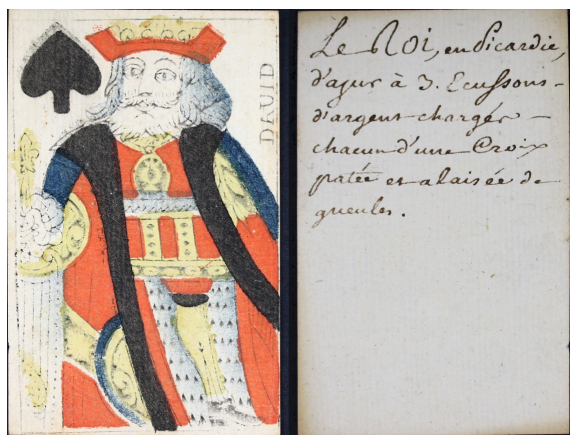 DAVID
Le Roi, en Picardie,
d'azur à 3. Ecussons-
d'argent chargés -
chacun d'une Croix
patée et alaisée de
gueules.